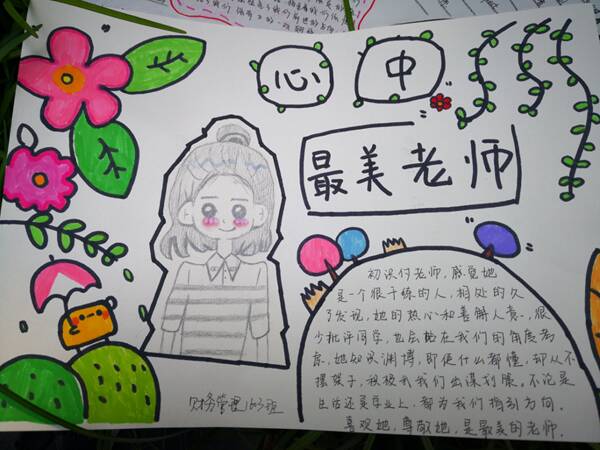 心中
最美老师
初识付老师，感觉她
是一个很干练的人，相处的久
了发现，她的热心和善解人意，很
少批评同学，也总能在我们的角度考
虑，她知识渊博，即使什么都懂，却从不
摆架子，积极和我们出谋划策，不论是
生活还是学业上，都为我们指引方向。
喜欢她，尊敬她，是最美的老师。
财务管理1603班